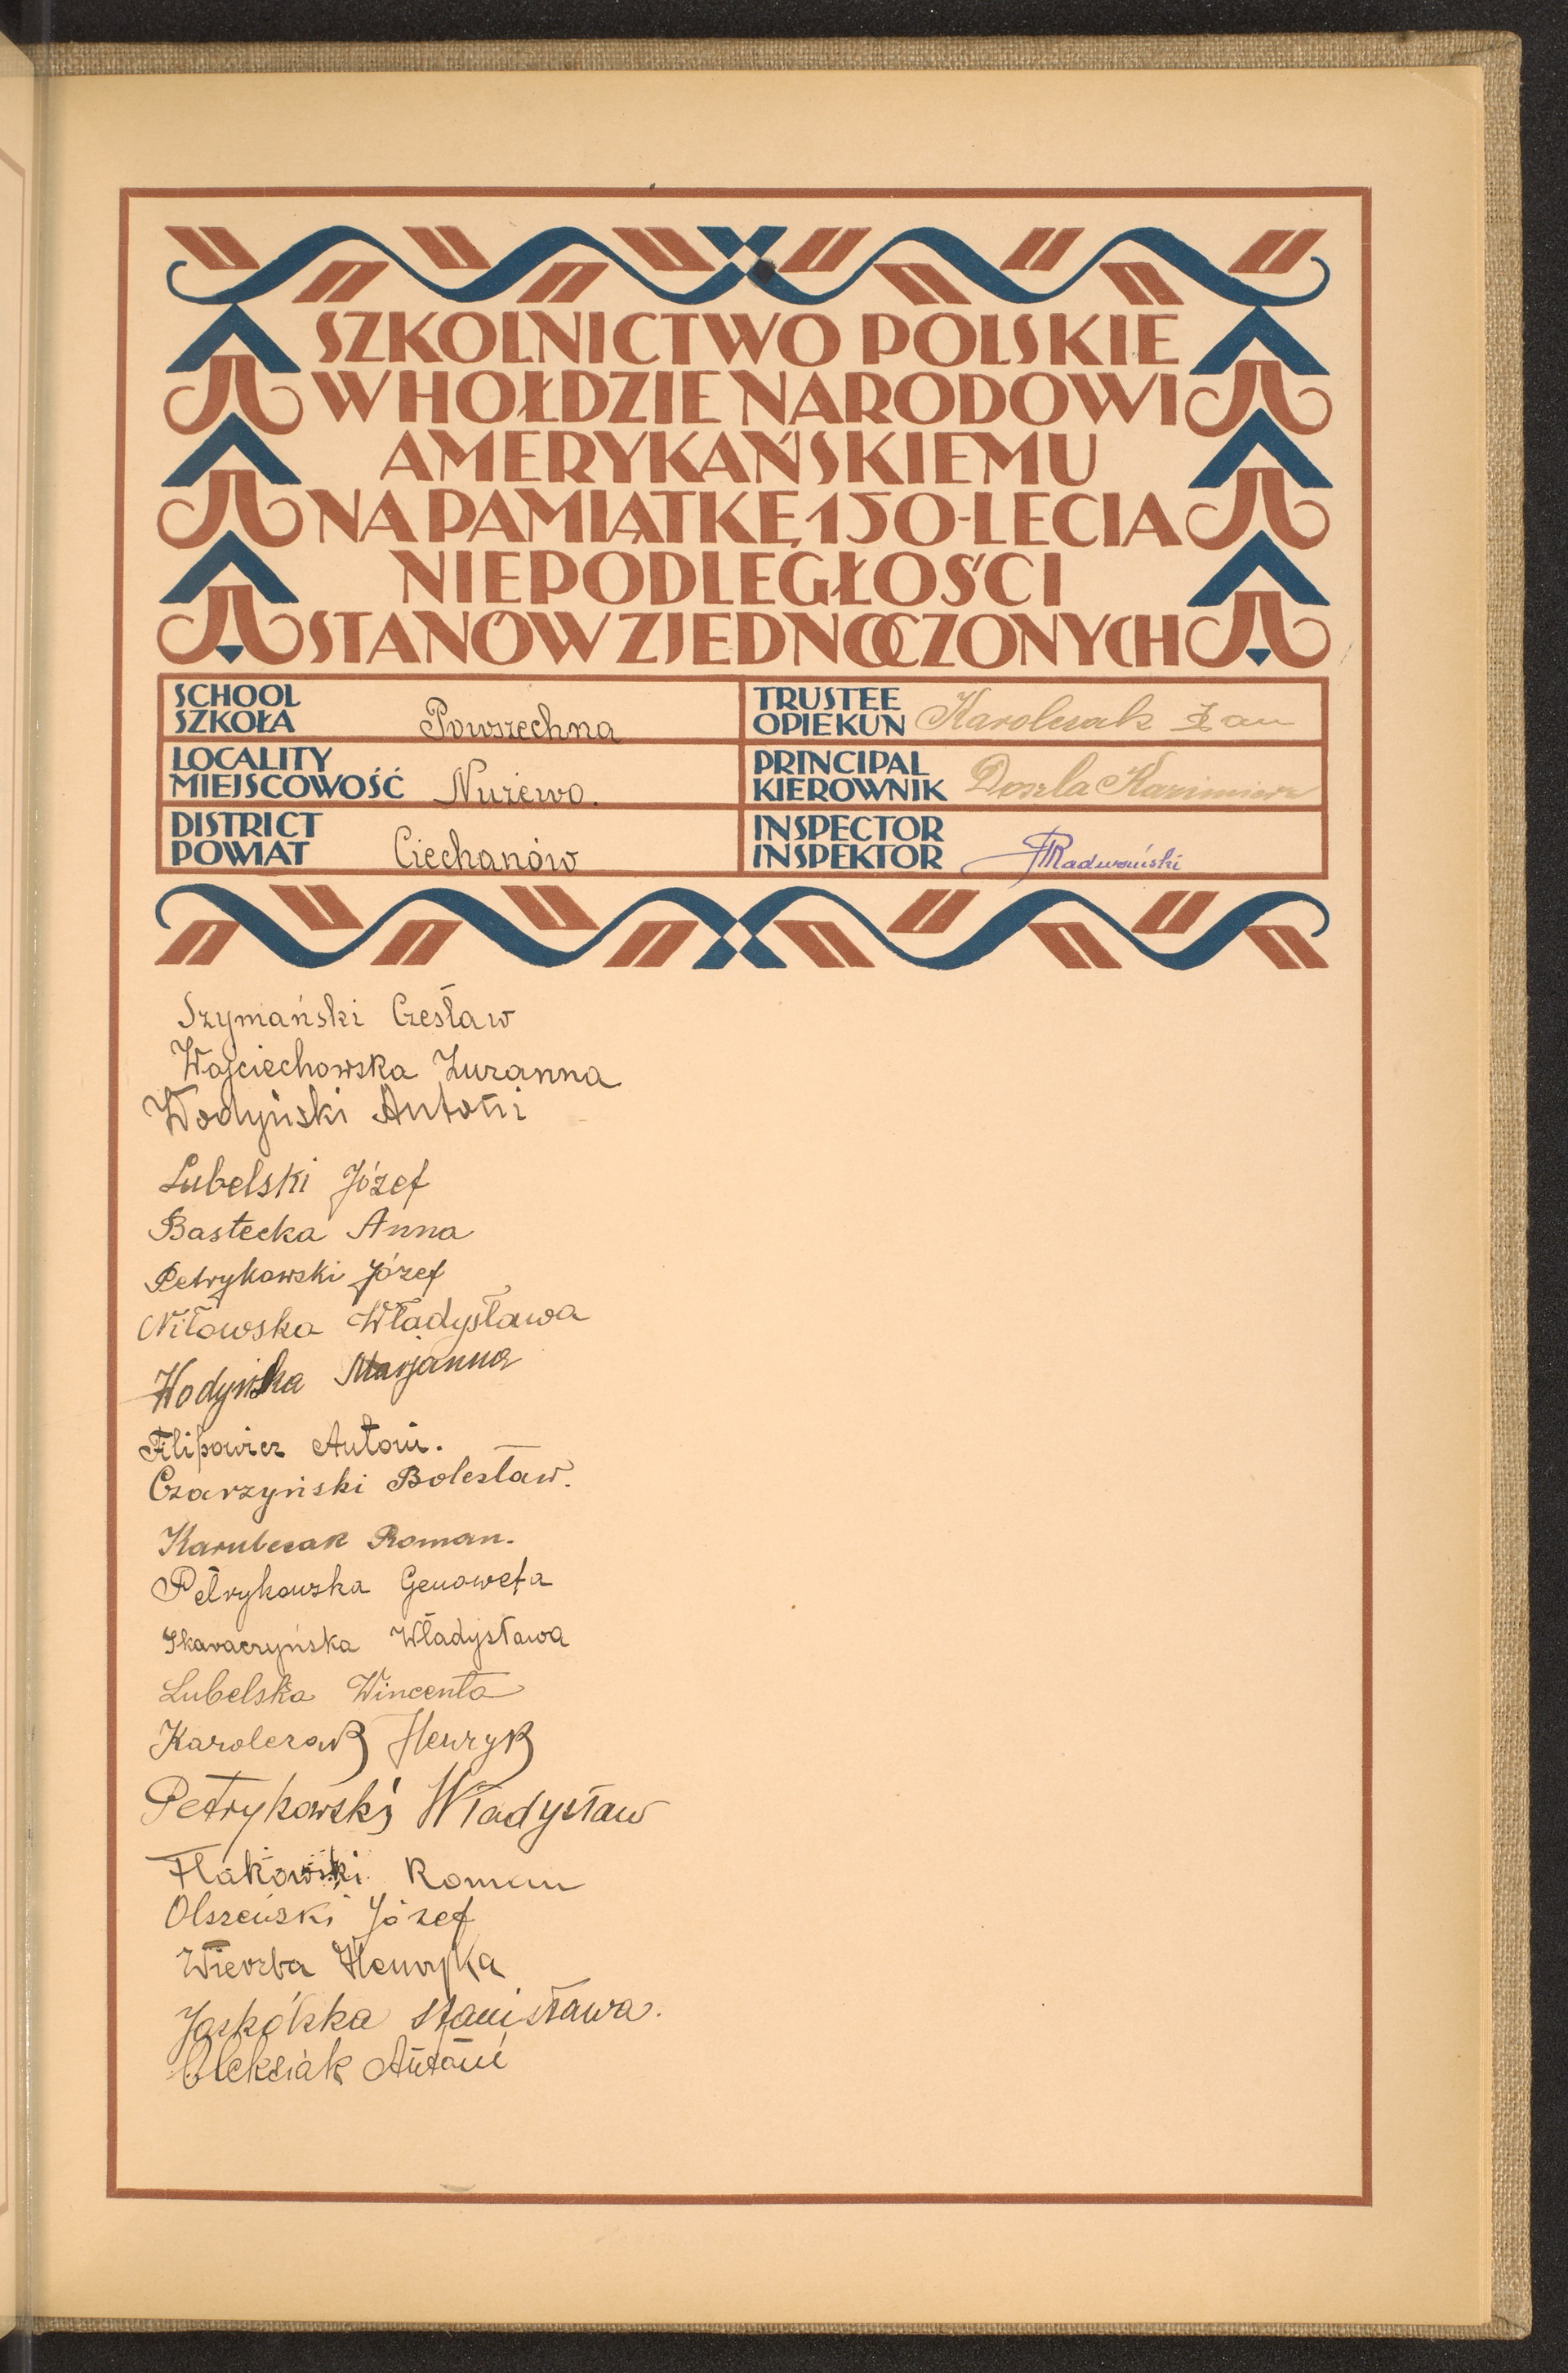 SZKOLNICTWO POLSKIE
W HOŁDZIE NARODOWI
AMERYKAŃSKIEMU
NA PAMIĄTKĘ 150-LECIA
NIEPODLEGŁOŚCI
STANÓW ZJEDNOCZONYCH
SCHOOL
SZKOŁA Powszechna
TRUSTEE
OPIEKUN Karolczak Jan
LOCALITY
MIEJSCOWOŚĆ Nużewo.
PRINCIPAL
KIEROWNIK Doszla Kazimierz
DISTRICT
POWIAT Ciechanów
INSPECTOR
INSPEKTOR Radwański
Szymański Czesław
Wojciechowska Zuzanna
Wodyński Antoni
Lubelski Józef
Bastecka Anna
Petrykowski Józef
Niłowska Władysława
Wodyńska Marjanna
Filipowicz Antoni.
Czarzyński Bolesław.
Karolczak Roman.
Petrykowska Genowefa
Skaraczyńska Władysława
Lubelska Wincenta
Karolczak Henryk
Petrykowski Władysław
Flakowski Roman
Olszeński Józef
Wierzba Henryka
Jaskólska Stanisława.
Oleksiak Antoni